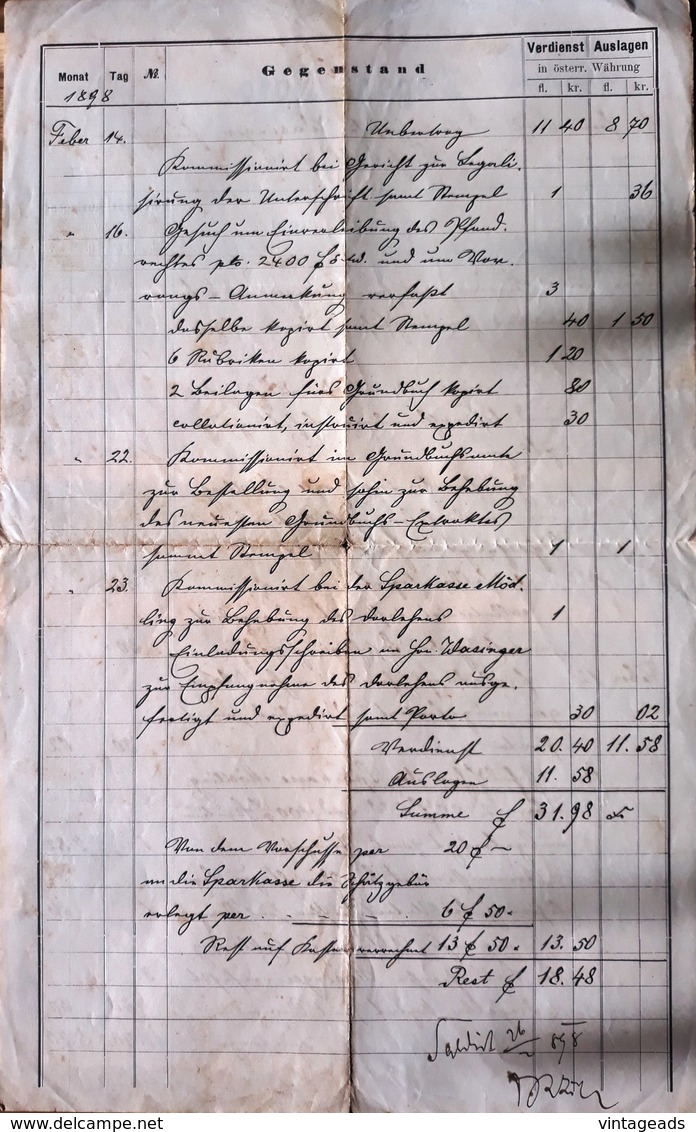 Verdienst Auslagen
Monat Tag № Gegenstand in österr. Währung
fl. kr. fl. kr.
1898
Feber 14. Uebertrag 11 40 8 70
Kommissionirt bei Gericht zur Legali-
sirung der Unterschrift samt Stempel 1 36
" 16. Gesuch um Einverleibung des Pfand-
rechtes pto. 2400 f s. und um Vor-
rangs-Anmerkung verfaßt 3
dasselbe kopirt samt Stempel 40 1 50
6 Rubriken kopirt 1 20
2 Beilagen fürs Grundbuch kopirt 80
collationirt, instruirt und expedirt 30
" 22. Kommissionirt im Grundbuchsamte
zur Bestellung und sohin zur Behebung
des neuesten Grundbuchs-Extraktes
sammt Stempel 1 1
" 23. Kommissionirt bei der Sparkasse Möd-
ling zur Behebung des Darlehens 1
Einladungsschreiben an Hrn. Wasinger
zur Empfangnahme des Darlehens ausge-
fertigt und expedirt samt Porto 30 02
Verdienst 20. 40 11. 58
Auslagen 11. 58
Summe f 31. 98
Von dem Vorschusse per 20 f –
an die Sparkasse die Schätzgebür
erlegt per . . . . 6 f 50.
Rest auf Kosten verrechnet 13 f 50. 13. 50
Rest f 18. 48
Saldirt 26/2 898
vintageads